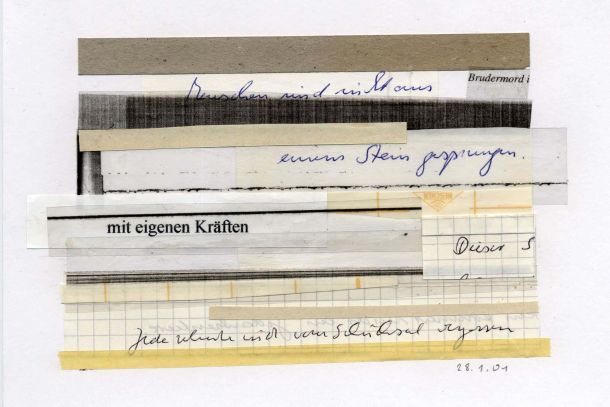 Brudermord i
Menschen sind nicht aus
einem Stein gesprungen.
mit eigenen Kräften
Dieser S
Jede wird vom Schicksal
28.1.01